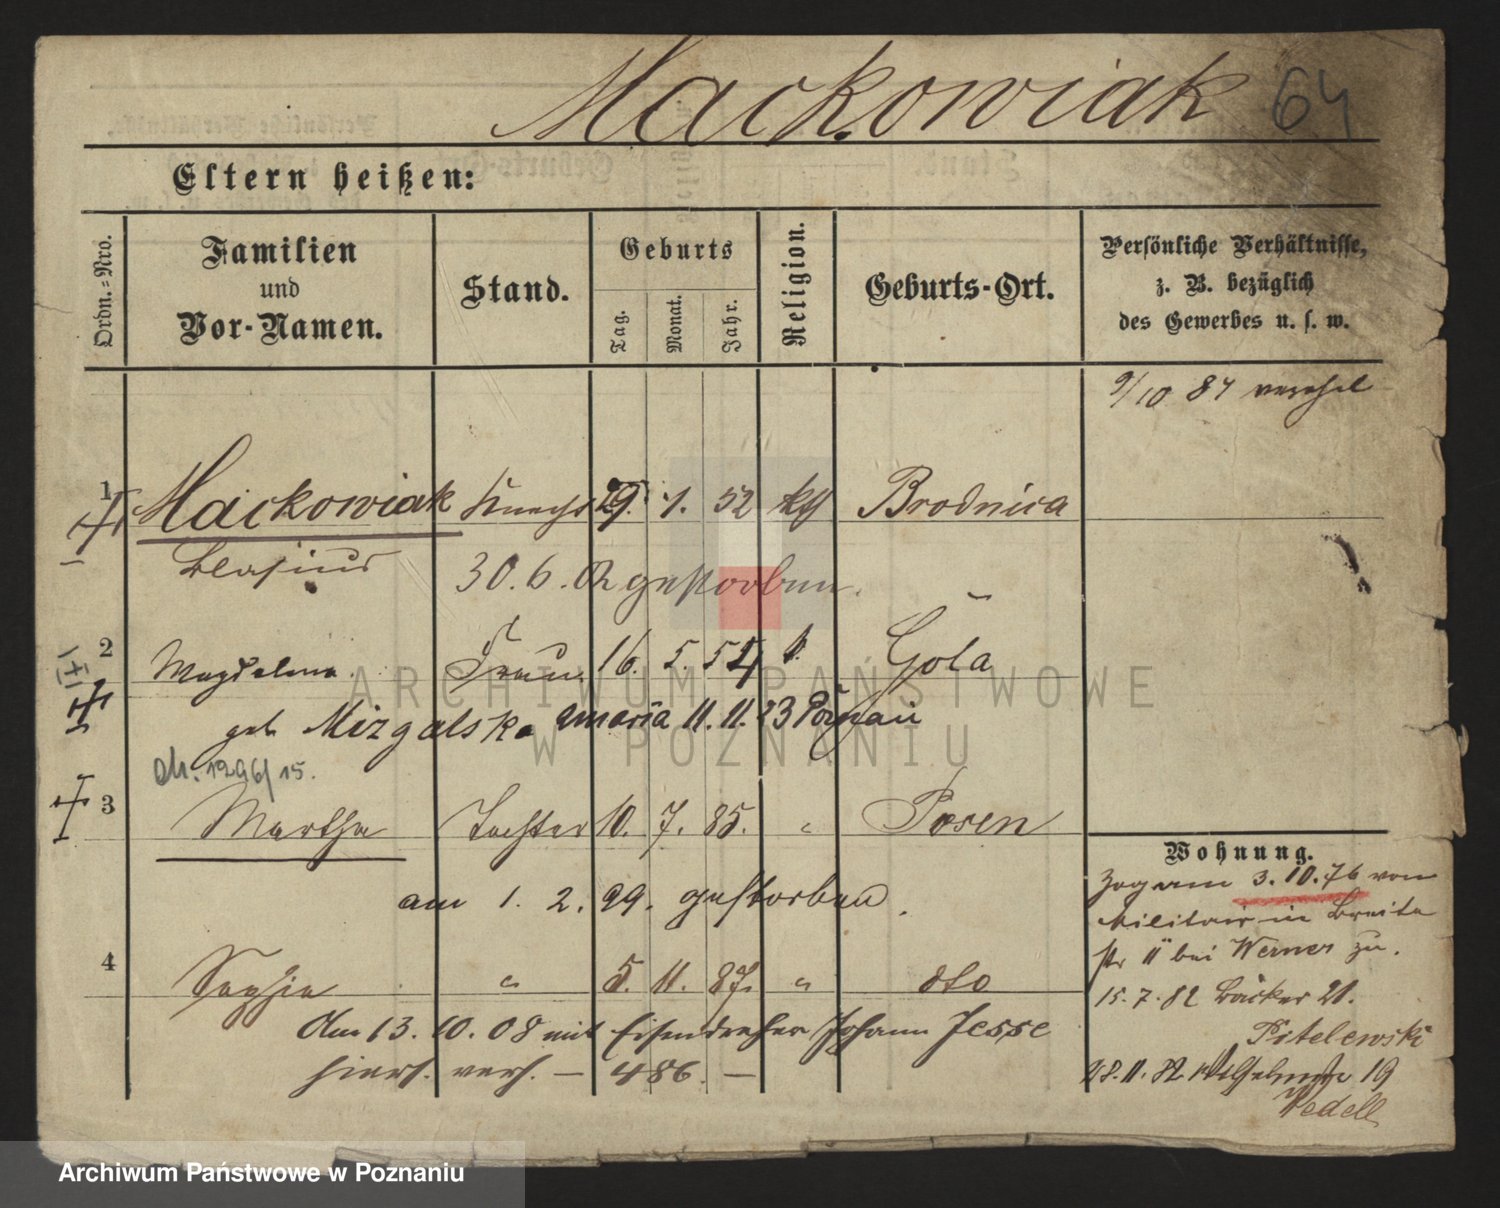 Mackowiak 64
Eltern heißen:
Ordn.=Nro.
Familien
und
Vor-Namen.
Stand.
Geburts
Tag.
Monat.
Jahr.
Religion.
Geburts-Ort.
Persönliche Verhältnisse,
z. B. bezüglich
des Gewerbes u. s. w.
9/10 84
1 Mackowiak Knecht 29. 1. 52 kth Brodnica
Blasius 30. 6. 02 gestorben.
2 Magdalena Frau 16. 5. 54 k. Gola
geb. Mizgalska 11. 11. 23 Poznań
1296/15.
3 Martha Tochter 10. 7. 85. " Posen
am 1. 2. 99. gestorben.
4 Sophie " 5. 11. 87. " dto
Am 13. 10. 08 mit Eisendreher Johann Jesse
hiers. verh. — 486. —
Wohnung.
Zog am 3. 10. 76 vom
Militair in Breite
str 11 bei Werner zu.
15. 7. 82 Bäcker 21.
Pitelewski
28. 11. 82 19
Wedell
ARCHIWUM PAŃSTWOWE
W POZNANIU
Archiwum Państwowe w Poznaniu